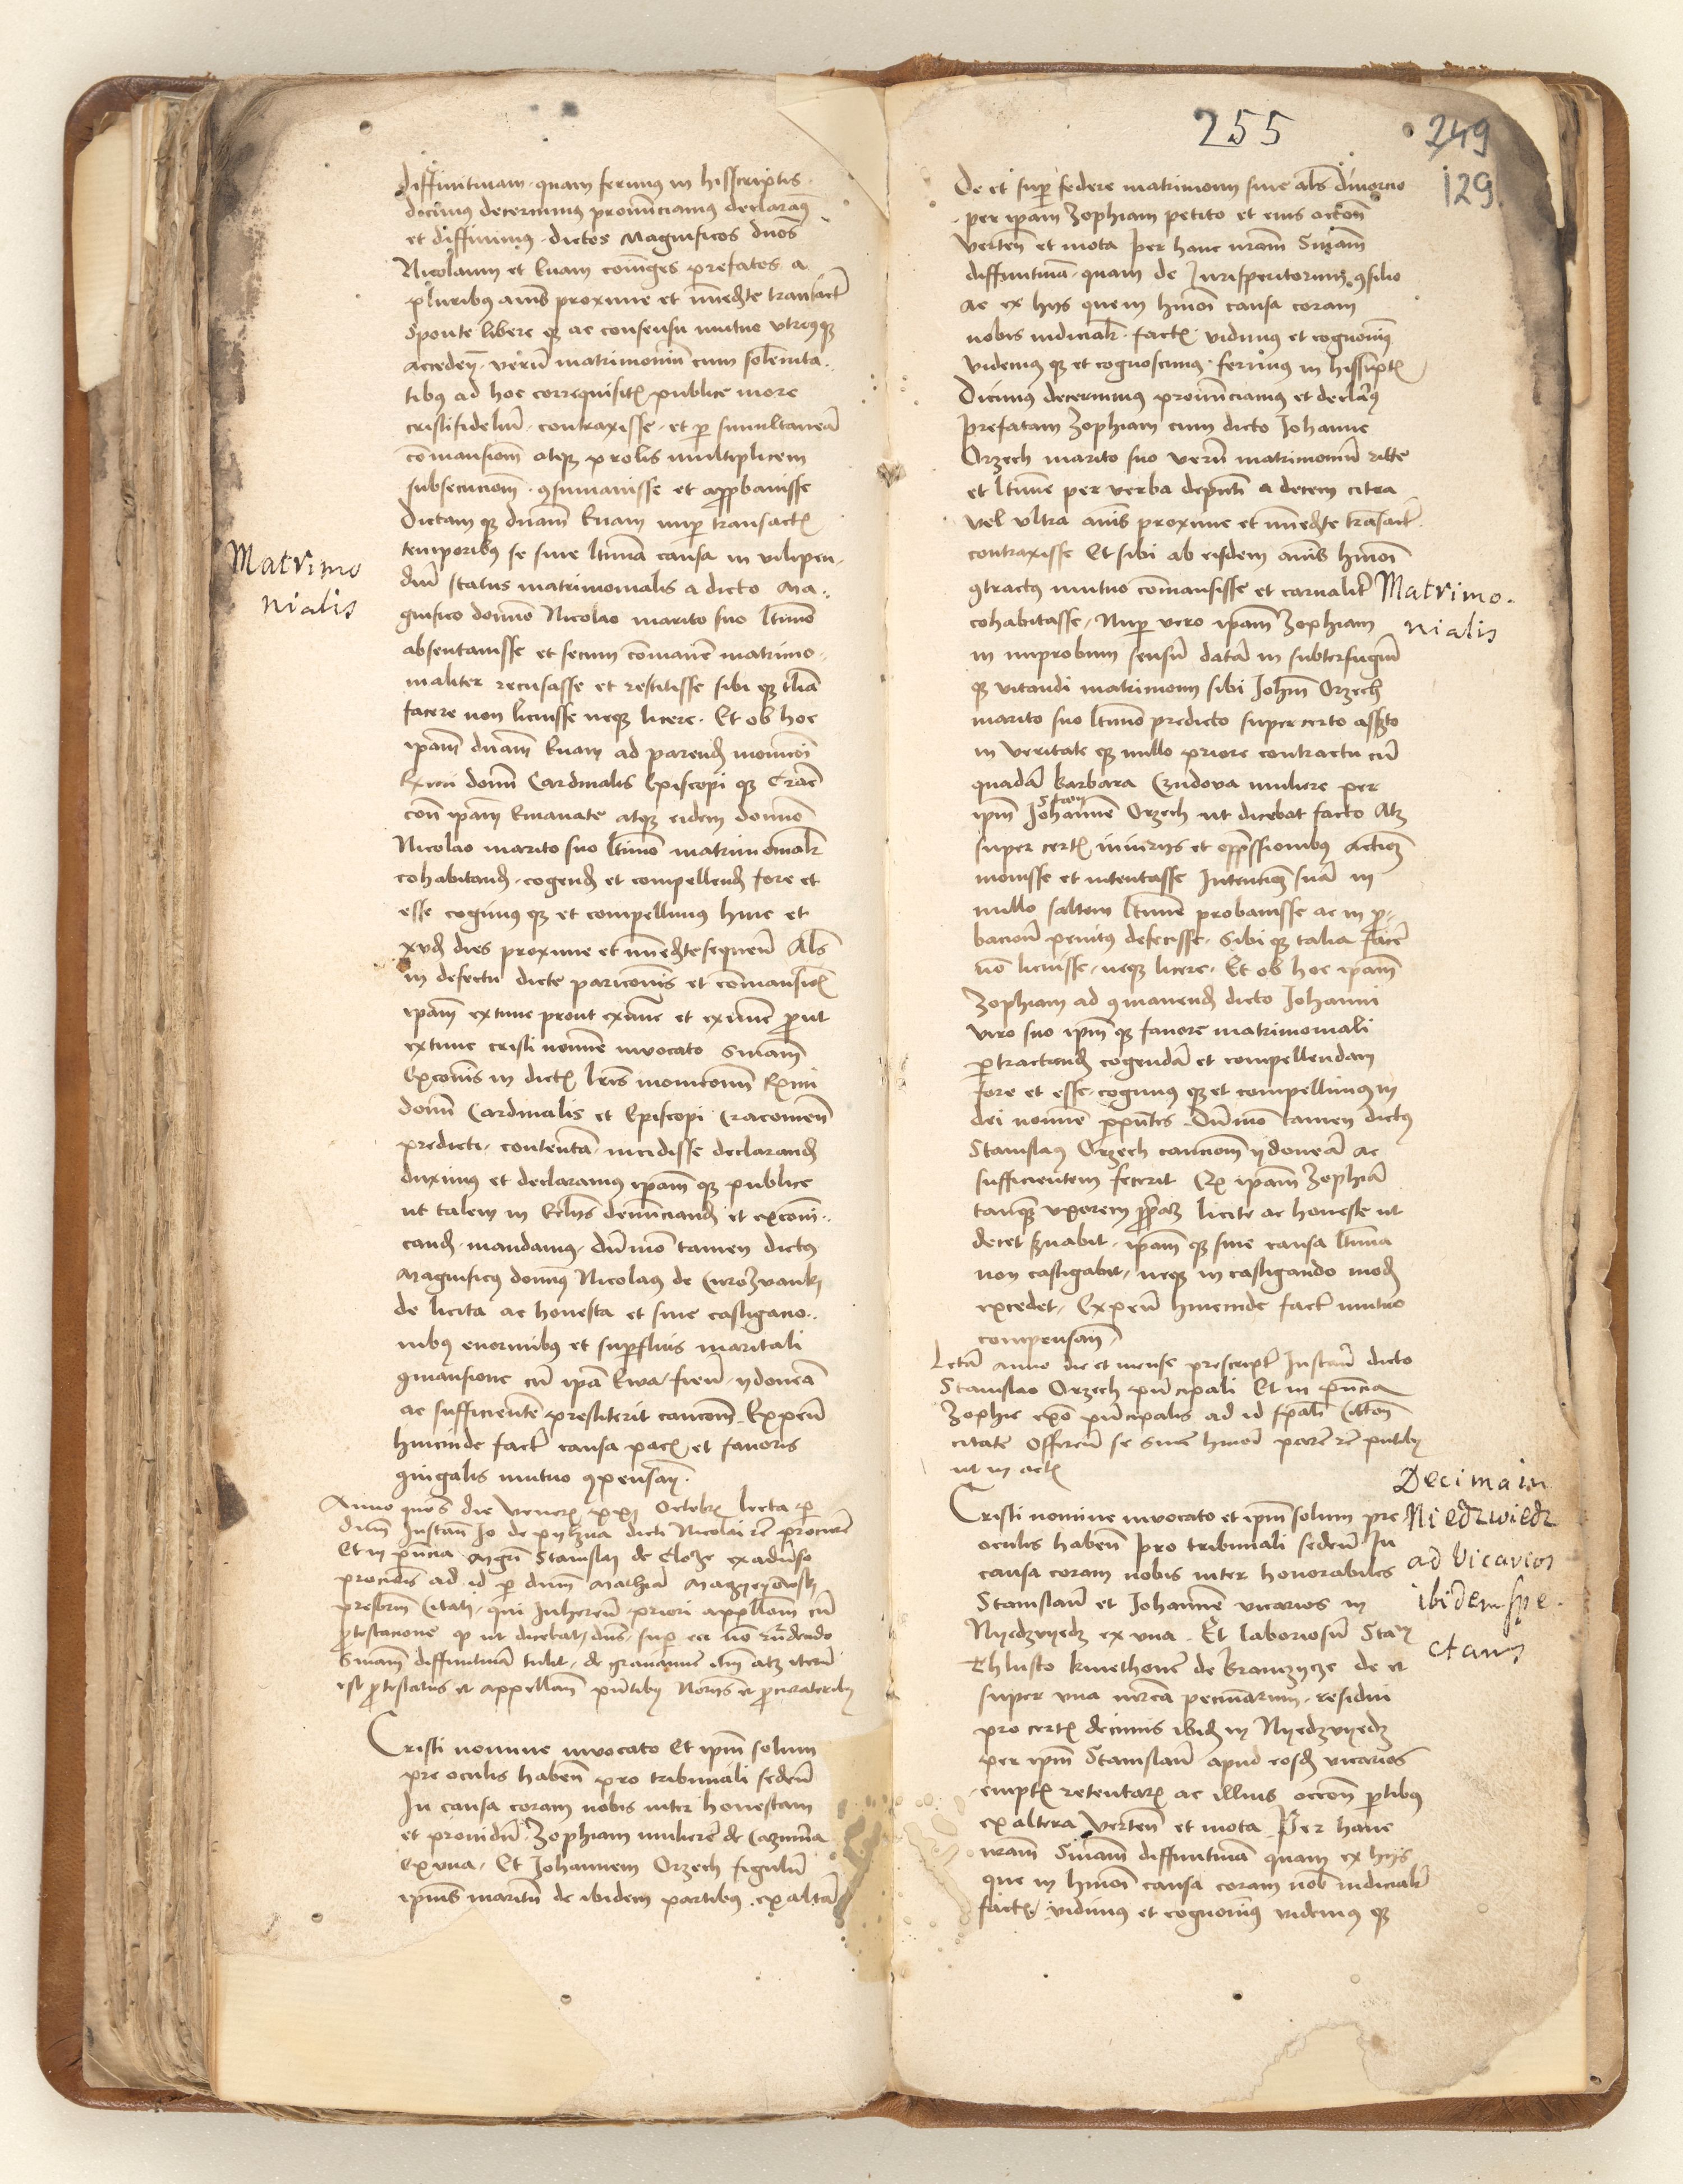 diffinitivam quam ferimus in hisscriptis
dicimus decernimus pronuncciamus declaramus
et diffinimus dictos Magnificos dnos
Nicolaum et Evam coniuges prefatos a
pluribus annis proxime et immediate transact
sponte libere que ac consensu mutuo utriusque
acceden verum matrimonium cum solemnita
tibus ad hoc correquisitis publice more
cristifidelium contraxisse et per simultaneam
comansionem atque prolis multiplicem
subsecucionem consumavisse et approbavisse
Dictam que dnam Evam nuper transactis
temporibus se sine ltima causa in vilipen
dium status matrimonialis a dicto Ma
gnifico domino Nicolao marito suo ltimo
absentavisse et secum comanere matrimo
nialiter recusasse et restitisse sibi que talia
facere non licuisse neque licere Et ob hoc
ipam dnam Evam ad parend monicioni
Rmi domini Cardinalis Episcopi que Crac
con ipam Emanate atque eidem domino
Nicolao marito suo ltimo matrimonialr
cohabitand cogend et compellend fore et
esse cogimus que et compellimus hinc et
xvcim dies proxime et immediate sequen Als
in defectu dicte paricionis et comansionis
ipam extunc prout exnunc et exnunc prout
extunc cristi nomine invocato sniam
Exconis in dictis lris monitorin Rmi
domini Cardinalis et Episcopi Cracovien
predicti contentam incidisse declarand
duximus et declaramus ipam que publice
ut talem in Ecclis denunciand et excom
cand mandamus dummo tamen dictus
Magnificus dominus Nicolaus de Curozvanky
de licita ac honesta et sine castigacio
nibus enormibus et superfluis maritali
comansione cum ipa Ewa fiend ydoneam
ac sufficientem prestiterit caucionem Expen
hincinde fact causa pacis et favoris
coniugalis mutuo compensan
Anno quos die veneris xxj Octobris lecta per
dnum Instan Jo de pylzna dicti Nicolai
Et in pncia Mgri Stanislai de
ad id per dnum Mathiam
Citati qui Inheren priori appellacioni cum
protestacione ut dicebat dnus super eo non
Sniam diffinitivam tulit de gravamine
est protestatus et appellavit pntibus Notariis et procuratoribus
Cristi nomine invocato Et ipm solum
pre oculis haben pro tribunali seden
In causa coram nobis inter honestam
et providum Zophiam mulierem de Cazimiria
Ex una Et Johannem Orzech figulum
ipius maritum de ibidem partibus ex altera
Matrimo
nialis
255
249
129
De et super federe matrimonii sive als divorcio
per ipam Zophiam petito et eius occon
verten et mota per hanc nram Sniam
diffinitivam quam de Jurisperitorum consilio
ac ex hys quem hmoi causa coram
nobis iudicialr factis vidimus et cognovimus
videmus que et cognoscimus ferimus in hisscriptis
Dicimus decernimus pronuncciamus et declaramus
prefatam Zophiam cum dicto Johanne
Orzech marito suo verum matrimonium ritte
et ltime per verba depnti a decem citra
vel ultra annis proxime et immediate transact
contraxisse Et sibi ab eisdem annis hmoi
contractus mutuo comansisse et carnaliter
cohabitasse Nuper vero ipam Zophiam
in improbum sensum datam in subterfugium
que vitandi matrimonii sibi Johan Orzech
marito suo ltimo predicto super certo asserto
in veritate que nullo priore contractu cum
quadam Barbara Czudova muliere per
ipm Johannem Orzech ut dicebat facto Atque
super certis iniuriis et oppressionibus actionem
movisse et intentasse Intencionem suam in
nullo saltem ltime probavisse ac in pro
bacione penitus defecisse sibi que talia facere
non licuisse neque licere Et ob hoc ipam
Zophiam ad comanend dicto Johanni
viro suo ipm que favore matrimoniali
pertractand cogendam et compellendam
fore et esse cogimus que et compellimus in
dei nomine per pntes Dummo tamen dictus
Stanislaus Orzech caucionem ydoneam ac
sufficientem fecerit Quod ipam Zophiam
tanquam uxorem propriam licite ac honeste ut
decet servabit ipam que sine causa ltima
non castigabit neque in castigando modum
excedet Expen hincinde fact mutuo
compensan
Lctam anno die et mense prescript Instan dicto
Stanislao Orzech principali Et in pncia
Zophie principalis ad id spali Citacon
citate Offeren se Snie hmoi parere pntibus
ut in actis
Cristi nomine invocato et ipm solum pre
oculis haben pro tribunali seden In
causa coram nobis inter honorabiles
Stanislaum et Johannem vicarios in
Nyedzvyedz ex una Et laboriosum Stan
Chlusto kmethonem de Kranczycze de et
super una mrca pecuniarum residui
pro certis decimis ibidem in Nyedzvyedz
per ipm Stanislaum apud eosdem vicarios
emptis retentarum ac illius occon partibus
ex altera verten et mota Per hanc
nram Sniam diffinitivam quam ex hys
que in hmoi causa coram nob iudicialr
factis vidimus et cognovimus videmus que
Matrimo.
nialis
Decima in
Niedzwiedz
ad vicarios
ibidem spe
ctans